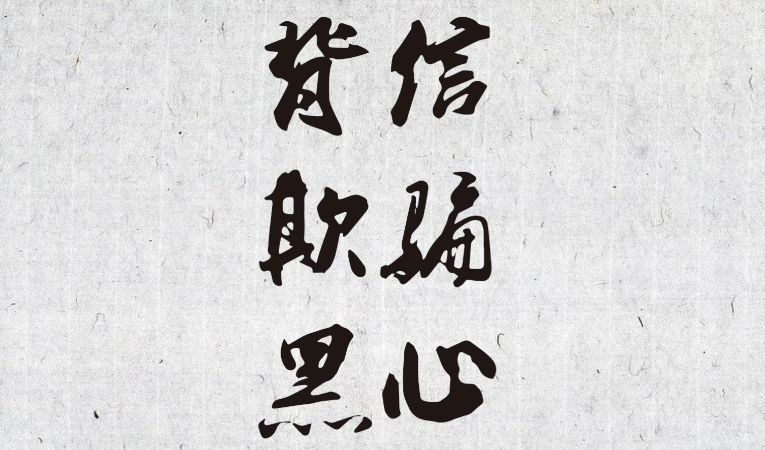 背信
欺骗
黑心